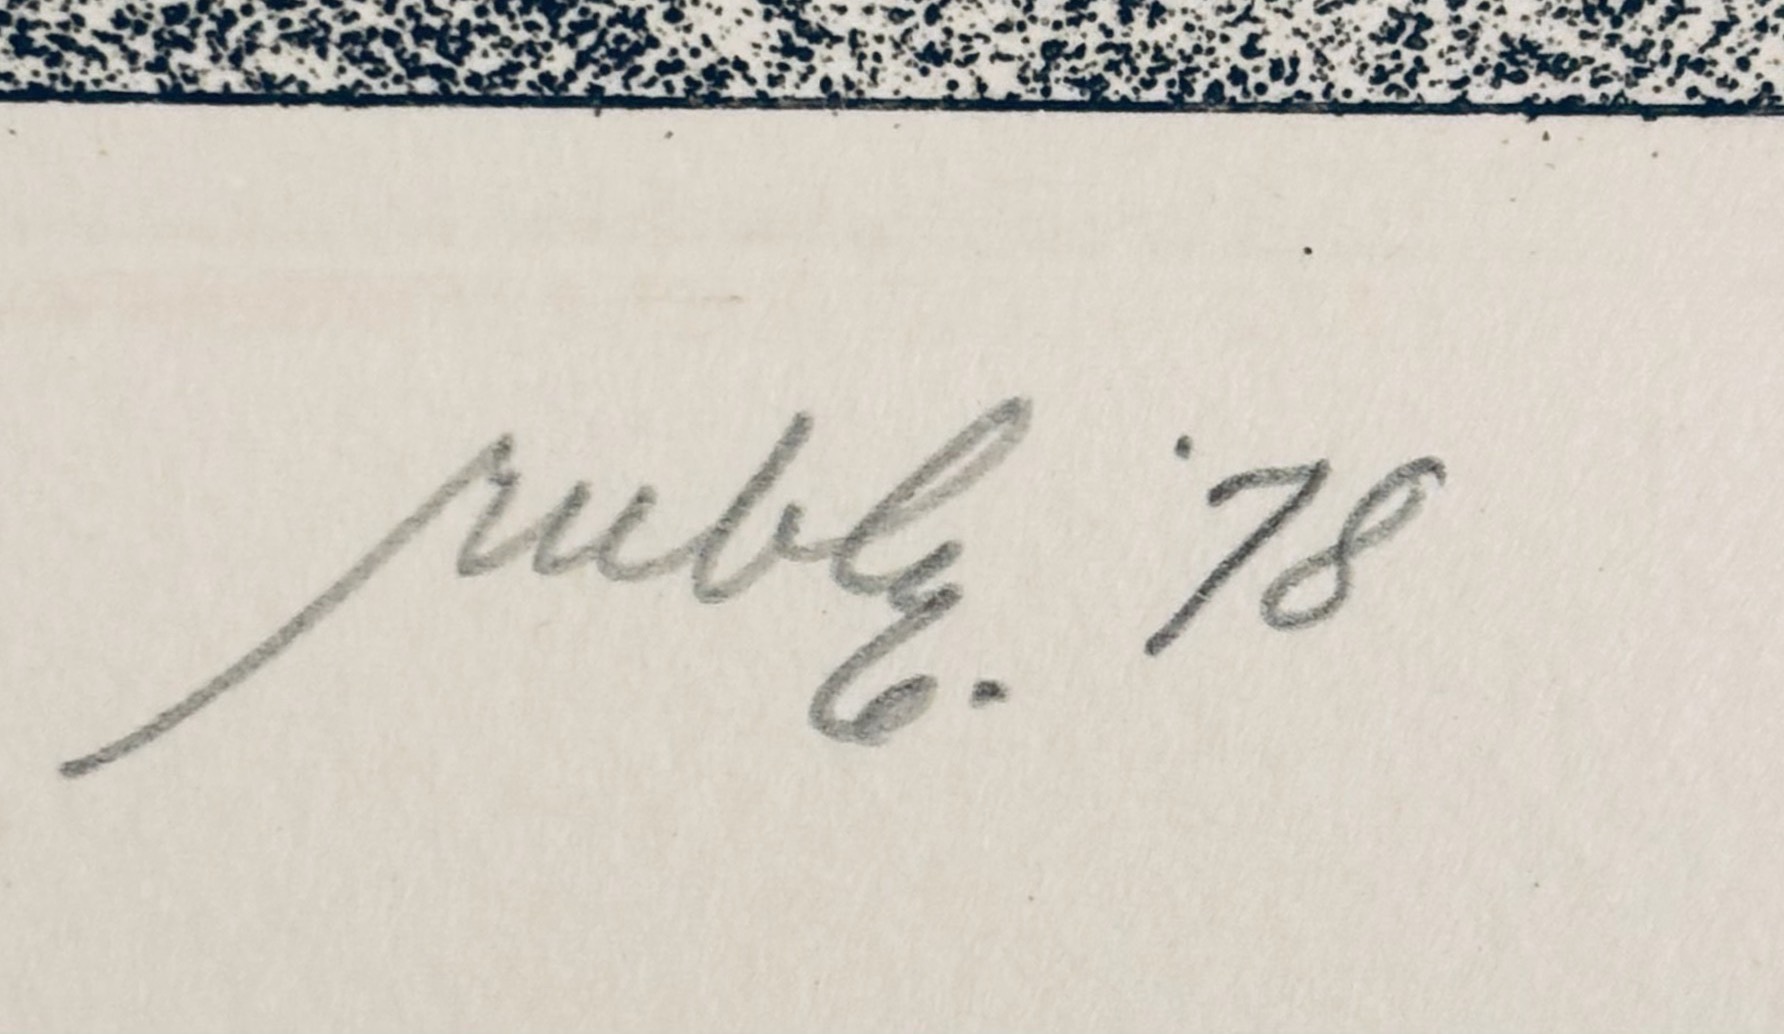 rubly. '78